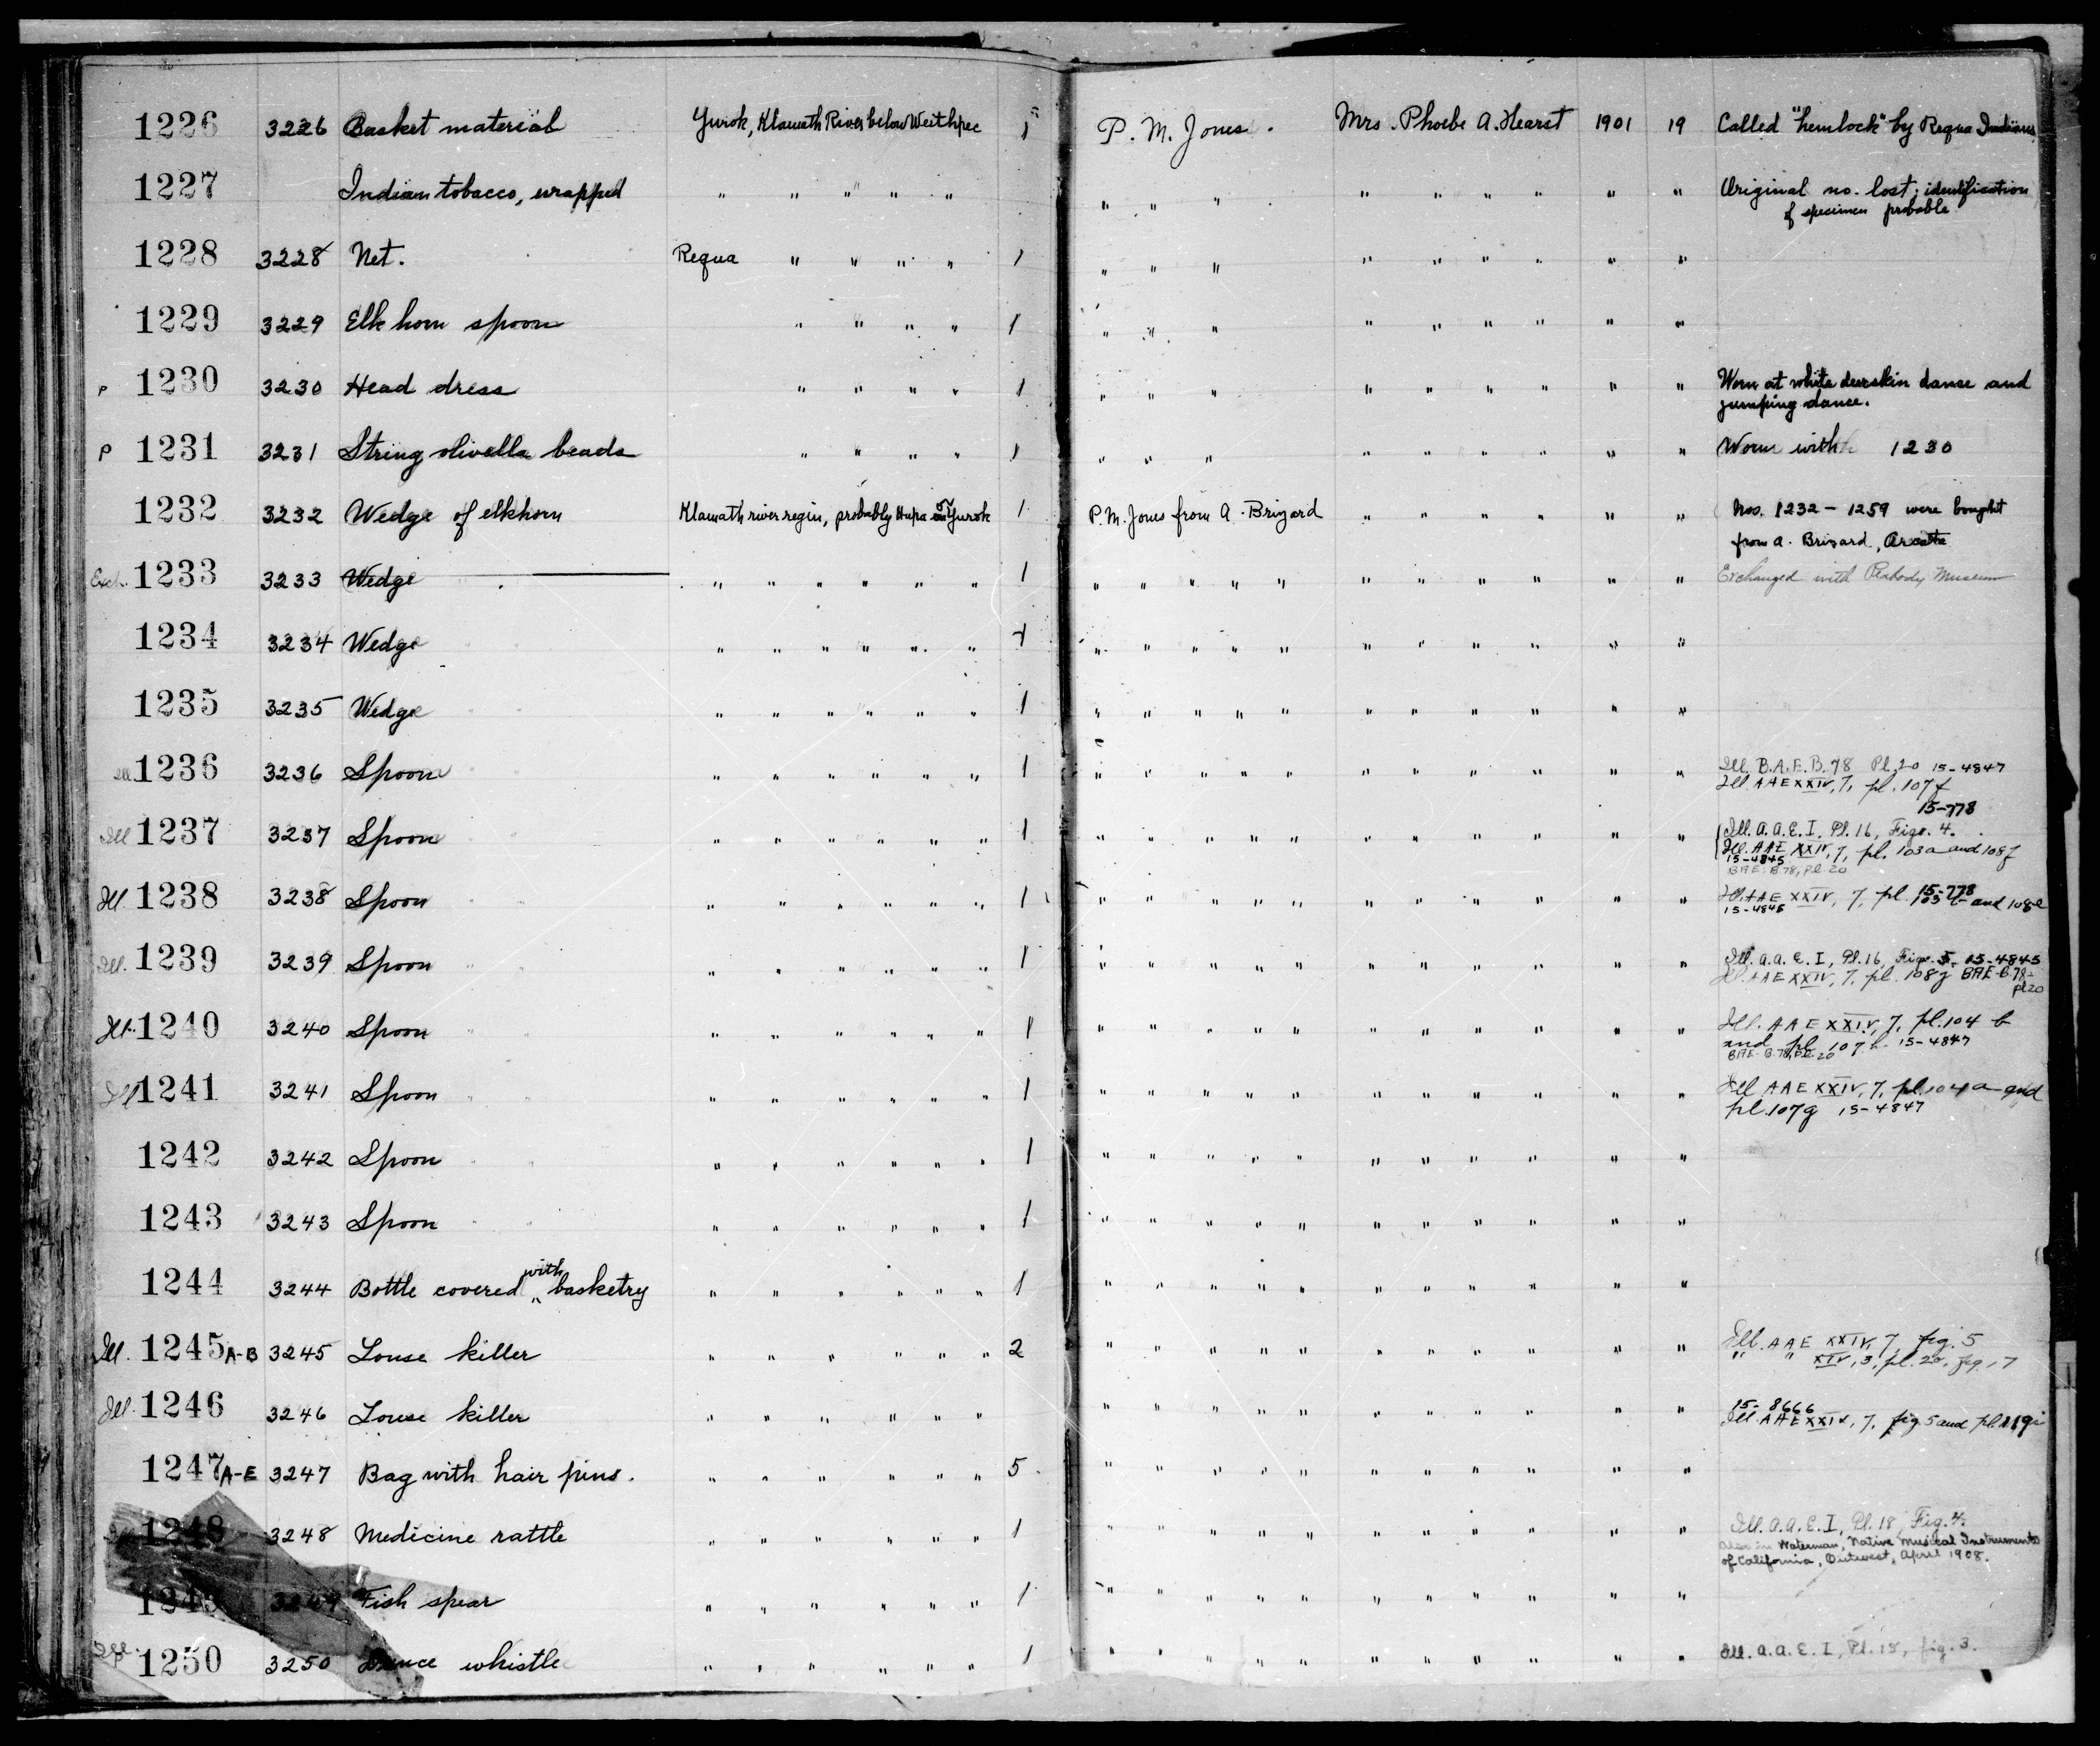 1226 3226 Basket material Yurok, Klamath River below Weithpec 1 P. M. Jones. Mrs. Phoebe A. Hearst 1901 19 Called "hemlock" by Requa Indians
1227 Indian tobacco, wrapped " " " " " " " " " " " " " " Original no. lost; identification
of specimen probable
1228 3228 Net. Requa " " " " 1 " " " " " " " " "
1229 3229 Elk horn spoon " " " " 1 " " " " " " " " "
P 1230 3230 Head dress " " " " 1 " " " " " " " " " Worn at white deerskin dance and
jumping dance.
P 1231 3231 String olivella beads " " " " 1 " " " " " " " " " Worn with 1230
1232 3232 Wedge of elkhorn Klamath river region, probably Hupa or Yurok 1 P. M. Jones from A. Brizard " " " " " " Nos. 1232 - 1259 were bought
from A. Brizard, Arcata
Exch. 1233 3233 Wedge " " " " " " 1 " " " " " " " " " " " Exchanged with Peabody Museum
1234 3234 Wedge " " " " " " 1 " " " " " " " " " " "
1235 3235 Wedge " " " " " " 1 " " " " " " " " " " "
Ill 1236 3236 Spoon " " " " " " 1 " " " " " " " " " " " Ill. B.A.E.B. 78 Pl. 20 15-4847
Ill. AAE XXIV, 7, pl. 107f
15-778
Ill 1237 3237 Spoon " " " " " " 1 " " " " " " " " " " " Ill. A.A.E. I, Pl. 16, Fig. 4.
Ill. AAE XXIV, 7, pl. 103a and 108f
15-4845
BAE-B.78, pl. 20
Ill. 1238 3238 Spoon " " " " " " 1 " " " " " " " " " " " Ill. AAE XXIV, 7, pl. 15-778 and 108e
15-4845
Ill. 1239 3239 Spoon " " " " " " 1 " " " " " " " " " " " Ill. A.A.E. I, Pl. 16, Fig. 5. 15-4845
Ill. AAE XXIV, 7, pl. 108g BAE-B.78-
pl 20
Ill. 1240 3240 Spoon " " " " " " 1 " " " " " " " " " " " Ill. AAE XXIV, 7, pl. 104 b
and pl. 107 h 15-4847
BAE-B.78, pl. 20
Ill 1241 3241 Spoon " " " " " " 1 " " " " " " " " " " " Ill AAE XXIV, 7, pl. 104a and
pl. 107g 15-4847
1242 3242 Spoon " " " " " " 1 " " " " " " " " " " "
1243 3243 Spoon " " " " " " 1 " " " " " " " " " " "
1244 3244 Bottle covered with basketry " " " " " " 1 " " " " " " " " " " "
Ill. 1245 A-B 3245 Louse killer " " " " " " 2 " " " " " " " " " " " Ill. AAE XXIV, 7, fig. 5
" " XIV, 3, pl. 20, fig. 17
Ill. 1246 3246 Louse killer " " " " " " " " " " " " " " " " " 15-8666
Ill. AAE XXIV, 7, fig 5 and pl 119i
1247 A-E 3247 Bag with hair pins. " " " " " " 5 " " " " " " " " " " "
1248 3248 Medicine rattle " " " " " " 1 " " " " " " " " " " " Ill. A.A.E. I, Pl. 18, Fig. 4.
also in Waterman, Native Musical Instruments
of California, Outwest, April 1908.
1249 3249 Fish spear " " " " " " 1 " " " " " " " " " " "
Ill. P 1250 3250 Dance whistle " " " " " " 1 " " " " " " " " " " " Ill. A.A.E. I, Pl. 15, fig. 3.